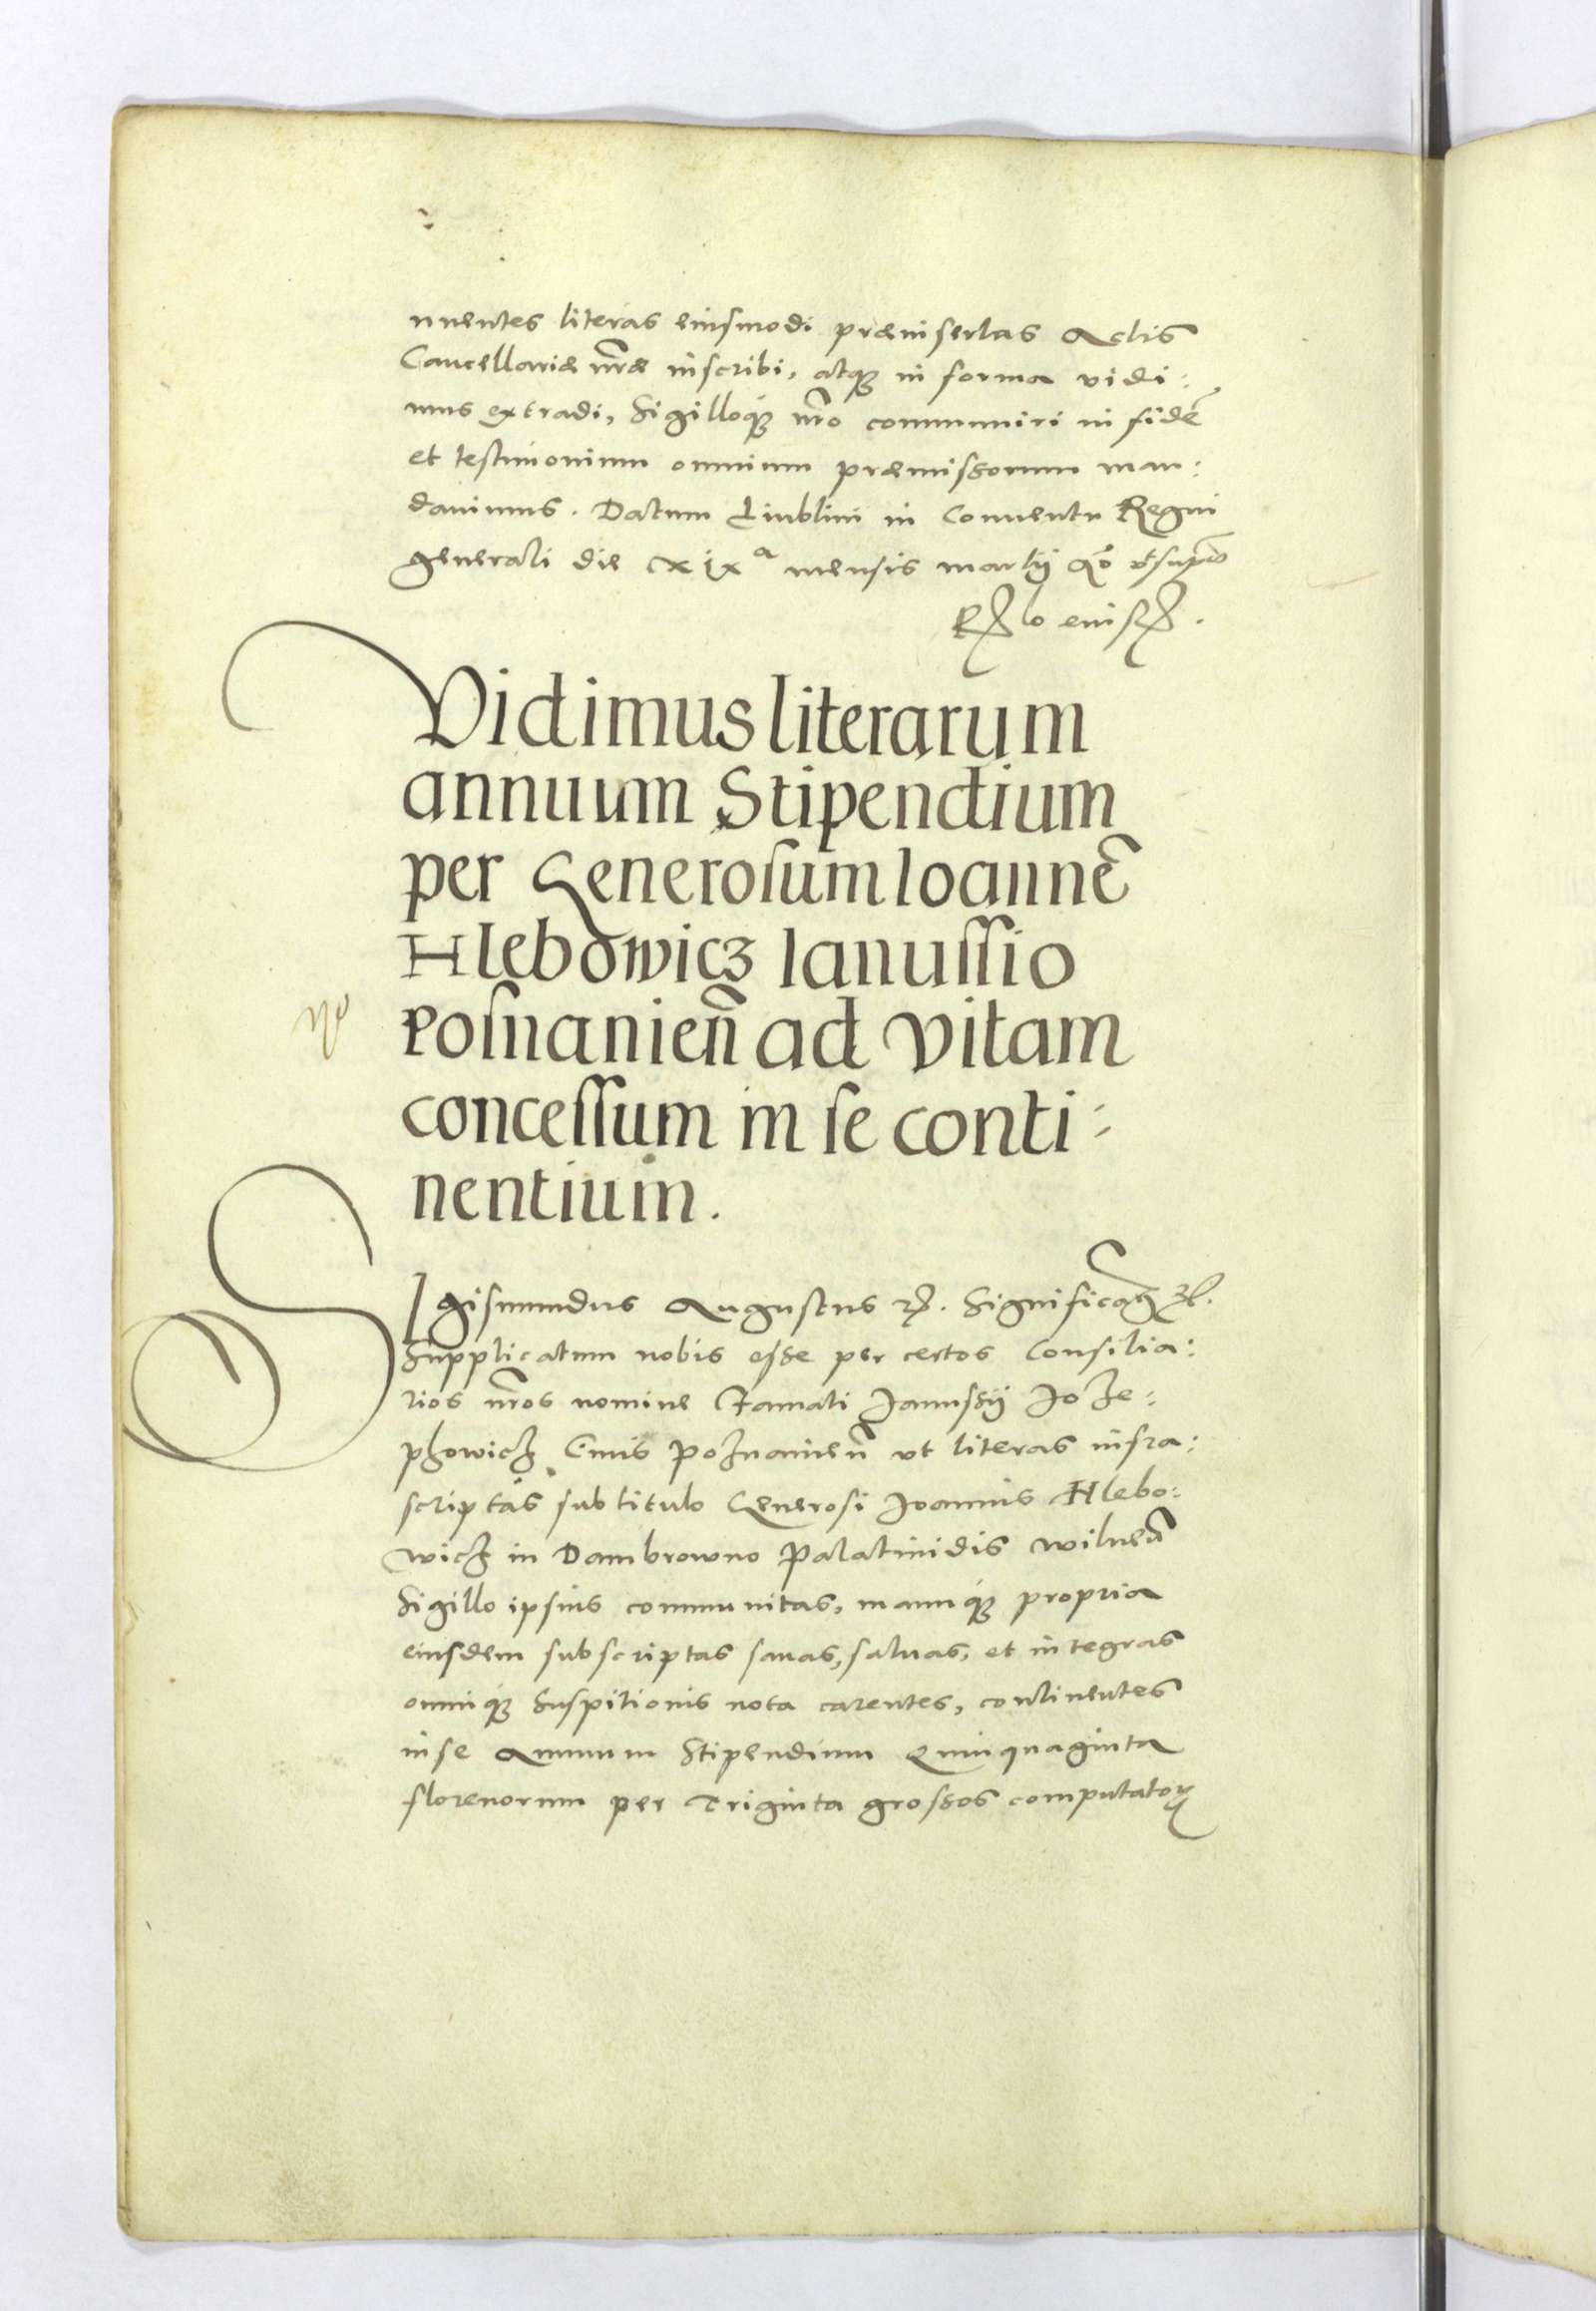 nuentes literas eiusmodi præinsertas Actis
Cancellariæ nr̃æ inscribi, atq3 in forma vidi:
mus extradi, Sigilloq3 nr̃o communiri in fidẽ
et testimonium omnium præmissorum man:
dauimus. Datum Liublini in Conuentu Regni
generali die xxixª mensis martij
R lo eiusꝝ.
Vidimus literarum
annuum Stipendium
per Generosum Ioannẽ
Hlebowicz Ianussio
Posnanieñ ad vitam
concessum in se conti:
nentium.
Sigismundus Augustus Significam9
Supplicatum nobis esse per certos Consilia:
rios nr̃os nomine famati Janussij Joze:
phowicz Ciuis Poznanieñ vt literas infra:
scriptas sub titulo Generosi Joannis Hlebo:
wicz in Dambrowno Palatinidis wilneñ
Sigillo ipsius communitas, manuq3 propria
eiusdem subscriptas sanas, saluas, et integras
omniq3 Suspitionis nota carentes, continentes
in se Annuum Stipendium Quinquaginta
florenorum per Triginta grossos computatoꝝ